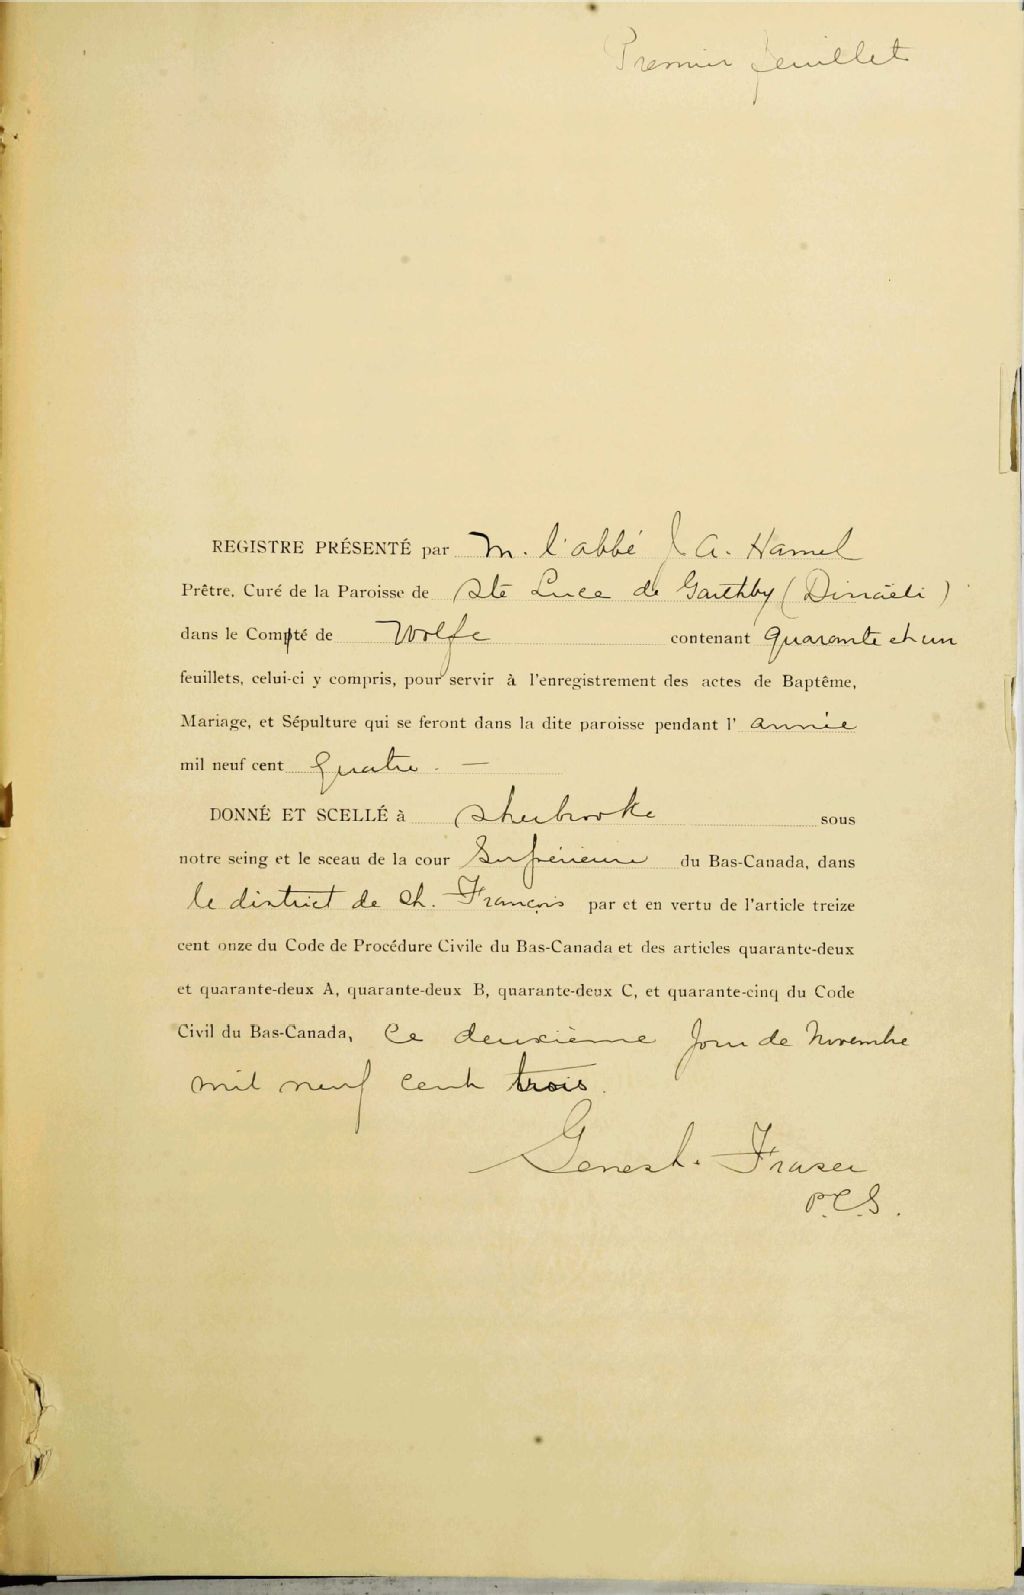 Premier feuillet
REGISTRE PRÉSENTÉ par M. l'abbé J. A. Hamel
Prêtre, Curé de la Paroisse de Ste Luce de Garthby (Disraëli)
dans le Compté de Wolfe contenant quarante et un
feuillets, celui-ci y compris, pour servir à l'enregistrement des actes de Baptême,
Mariage, et Sépulture qui se feront dans la dite paroisse pendant l' année
mil neuf cent quatre. —
DONNÉ ET SCELLÉ à Sherbrooke sous
notre seing et le sceau de la cour Supérieure du Bas-Canada, dans
le district de St. François par et en vertu de l'article treize
cent onze du Code de Procédure Civile du Bas-Canada et des articles quarante-deux
et quarante-deux A, quarante-deux B, quarante-deux C, et quarante-cinq du Code
Civil du Bas-Canada, ce deuxième jour de Novembre
mil neuf cent trois.
Genest. Fraser
P.C.S.